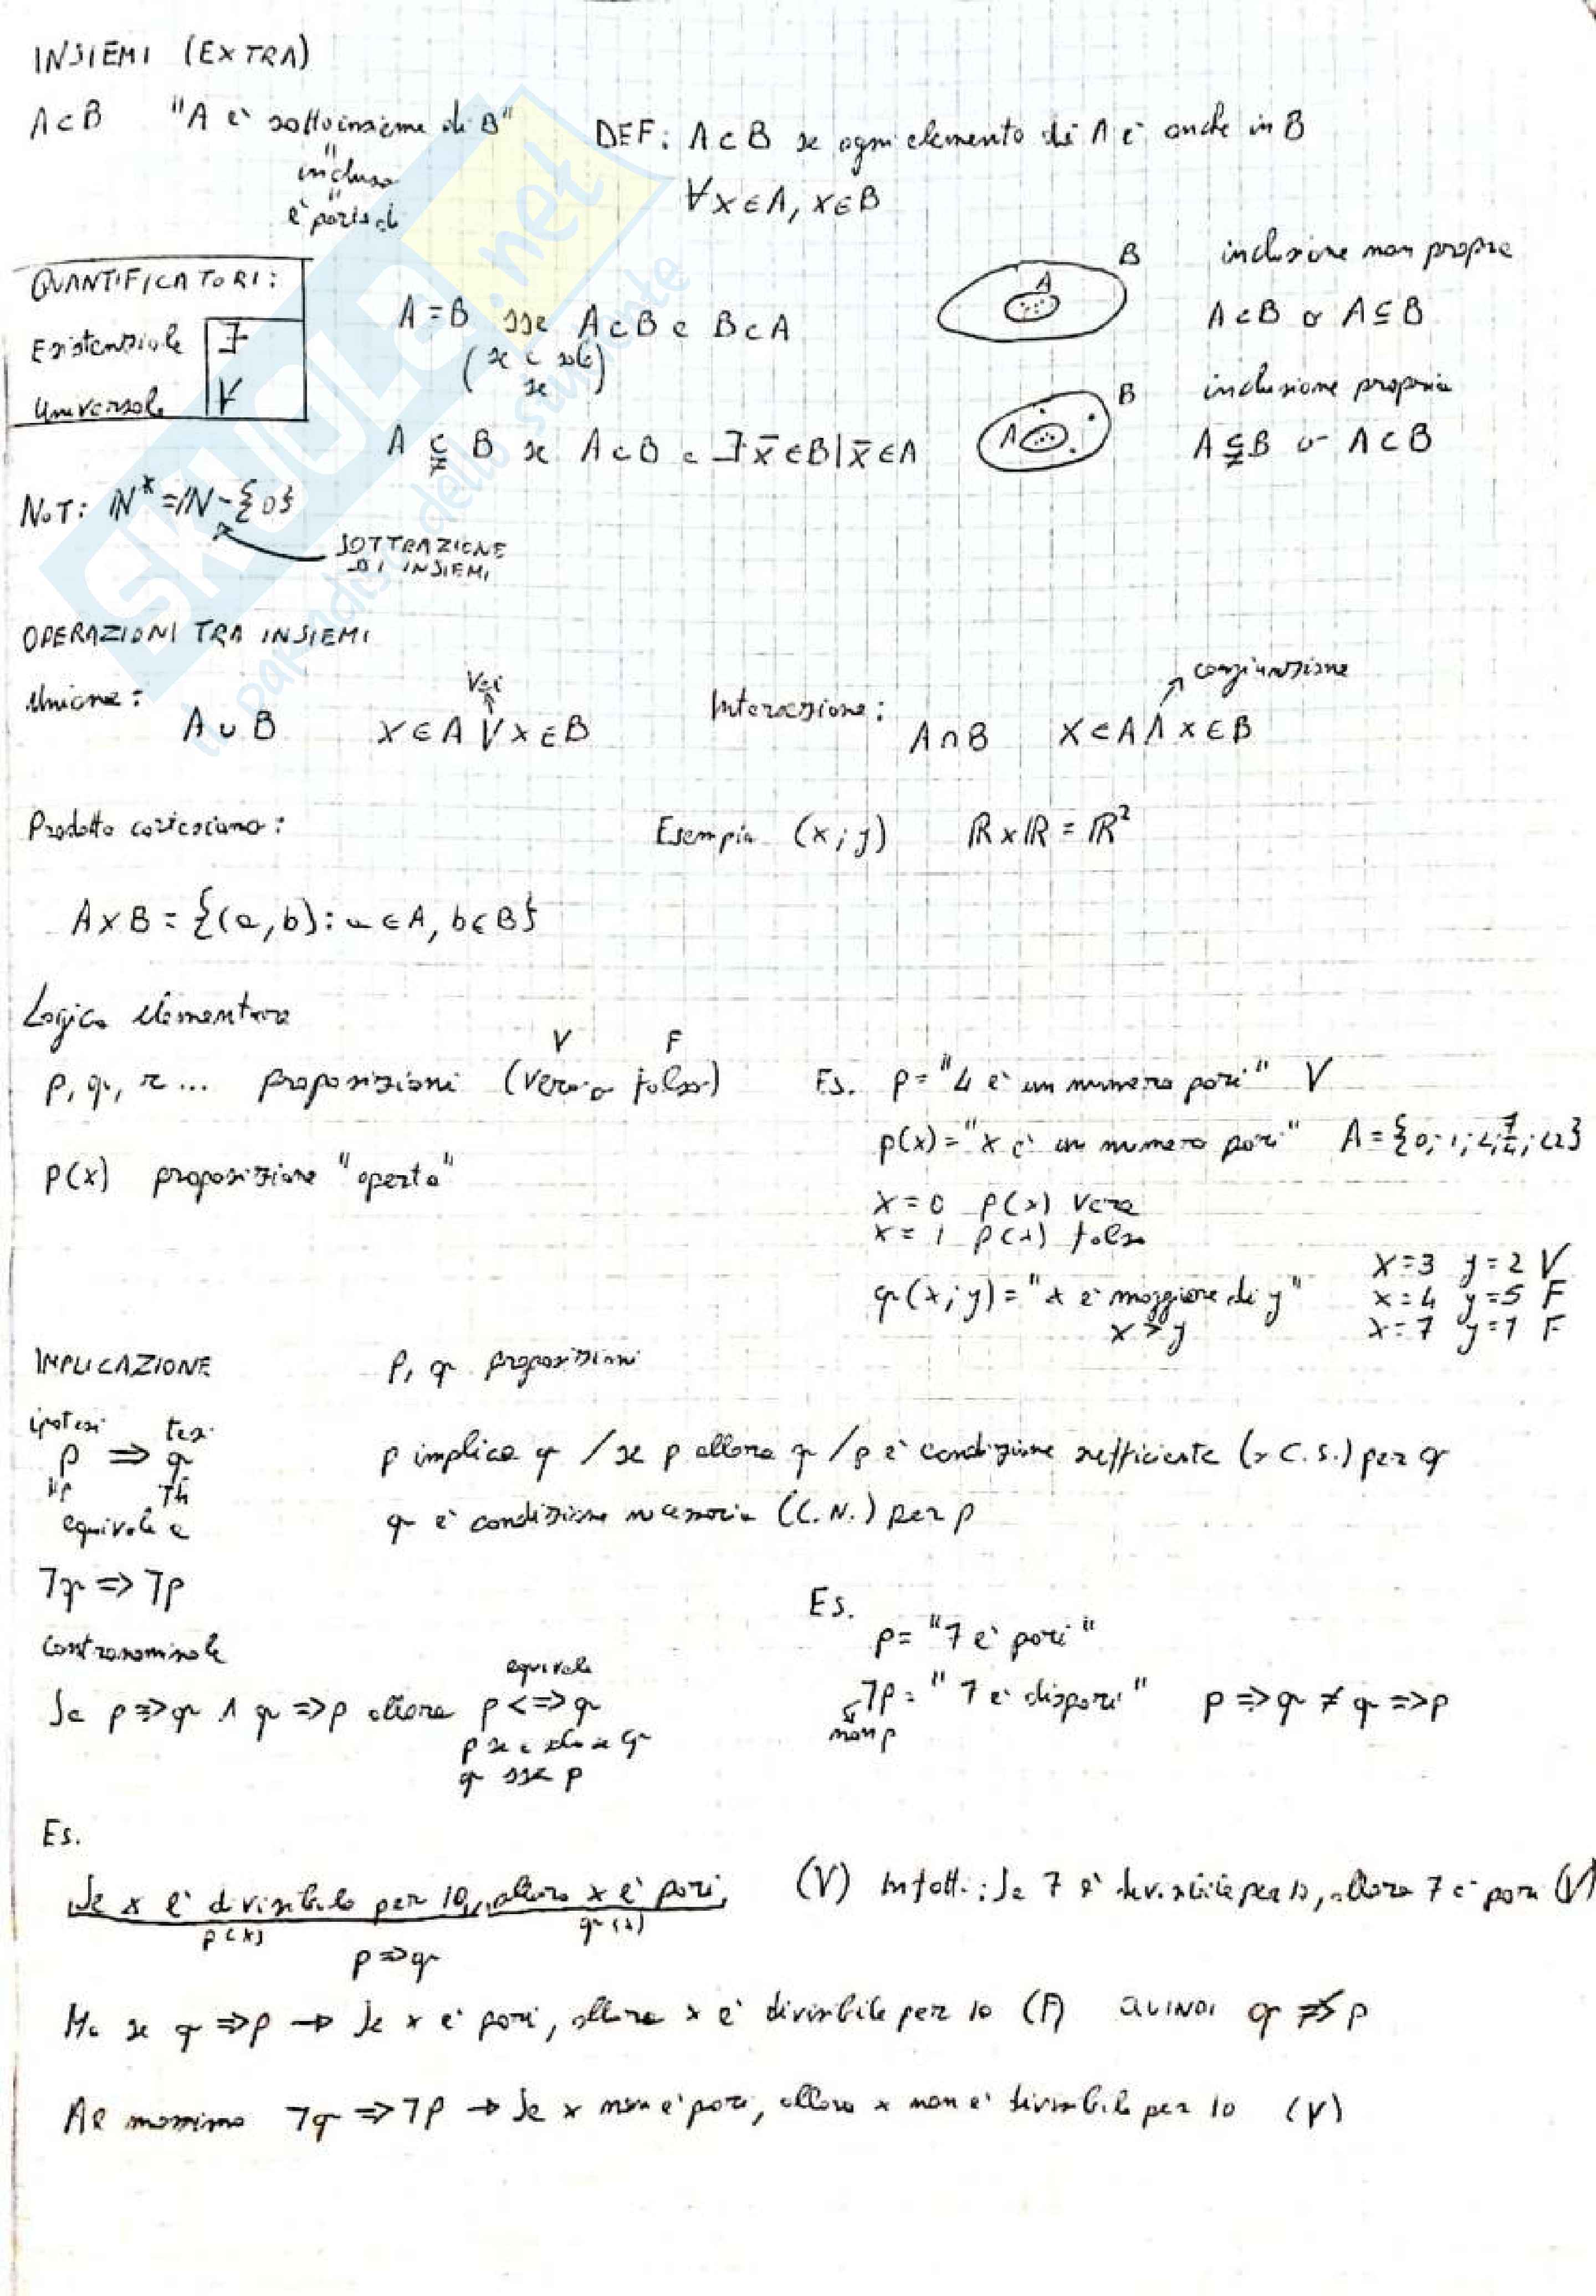 INSIEMI (EXTRA)
A⊂B "A è sottoinsieme di B" DEF: A⊂B se ogni elemento di A è anche in B
"
incluso
"
è parte di
∀x∈A, x∈B
QUANTIFICATORI:
Esistenziale ∃
Universale ∀
A=B sse A⊂B e B⊂A
(se e solo se)
A ⊊ B se A⊂B e ∃x̄∈B|x̄∈A
B A inclusione non propria
A⊂B o A⊆B
B A inclusione propria
A⊊B o A⊂B
NOT: ℕ*=ℕ-{0}
SOTTRAZIONE
DI INSIEMI
OPERAZIONI TRA INSIEMI
Unione: A∪B x∈A ∨ x∈B Vel
Intersezione: A∩B x∈A ∧ x∈B congiunzione
Prodotto cartesiano: Esempio (x;y) ℝxℝ=ℝ²
AxB={(a,b): a∈A, b∈B}
Logica elementare
V F
p, q, r... proposizioni (vero o falso) Es. p="4 è un numero pari" V
p(x)="x è un numero pari" A={0;1;
p(x) proposizione "aperta"
x=0 p(x) vera
x=1 p(x) falsa
q(x;y)="x è maggiore di y"
x>y
x=3 y=2 V
x=4 y=5 F
x=7 y=7 F
IMPLICAZIONE p, q proposizioni
ipotesi tesi
p ⇒ q p implica q / se p allora q / p è condizione sufficiente (C.S.) per q
Hp Th
equivale a q è condizione necessaria (C.N.) per p
¬q ⇒ ¬p
contronominale
Es.
p="7 è pari"
¬p="7 è dispari" p⇒q ≠ q⇒p
non p
equivale
Se p⇒q ∧ q⇒p allora p<=>q
p se e solo se q
q sse p
Es.
Se x è divisibile per 10, allora x è pari, (V) Infatti: Se 7 è divisibile per 10, allora 7 è pari (V)
p(x) q(x)
p⇒q
Ma se q⇒p → Se x è pari, allora x è divisibile per 10 (F) QUINDI q ⇏ p
Al massimo ¬q ⇒ ¬p → Se x non è pari, allora x non è divisibile per 10 (V)
SKUOLA.net
il paradiso dello studente